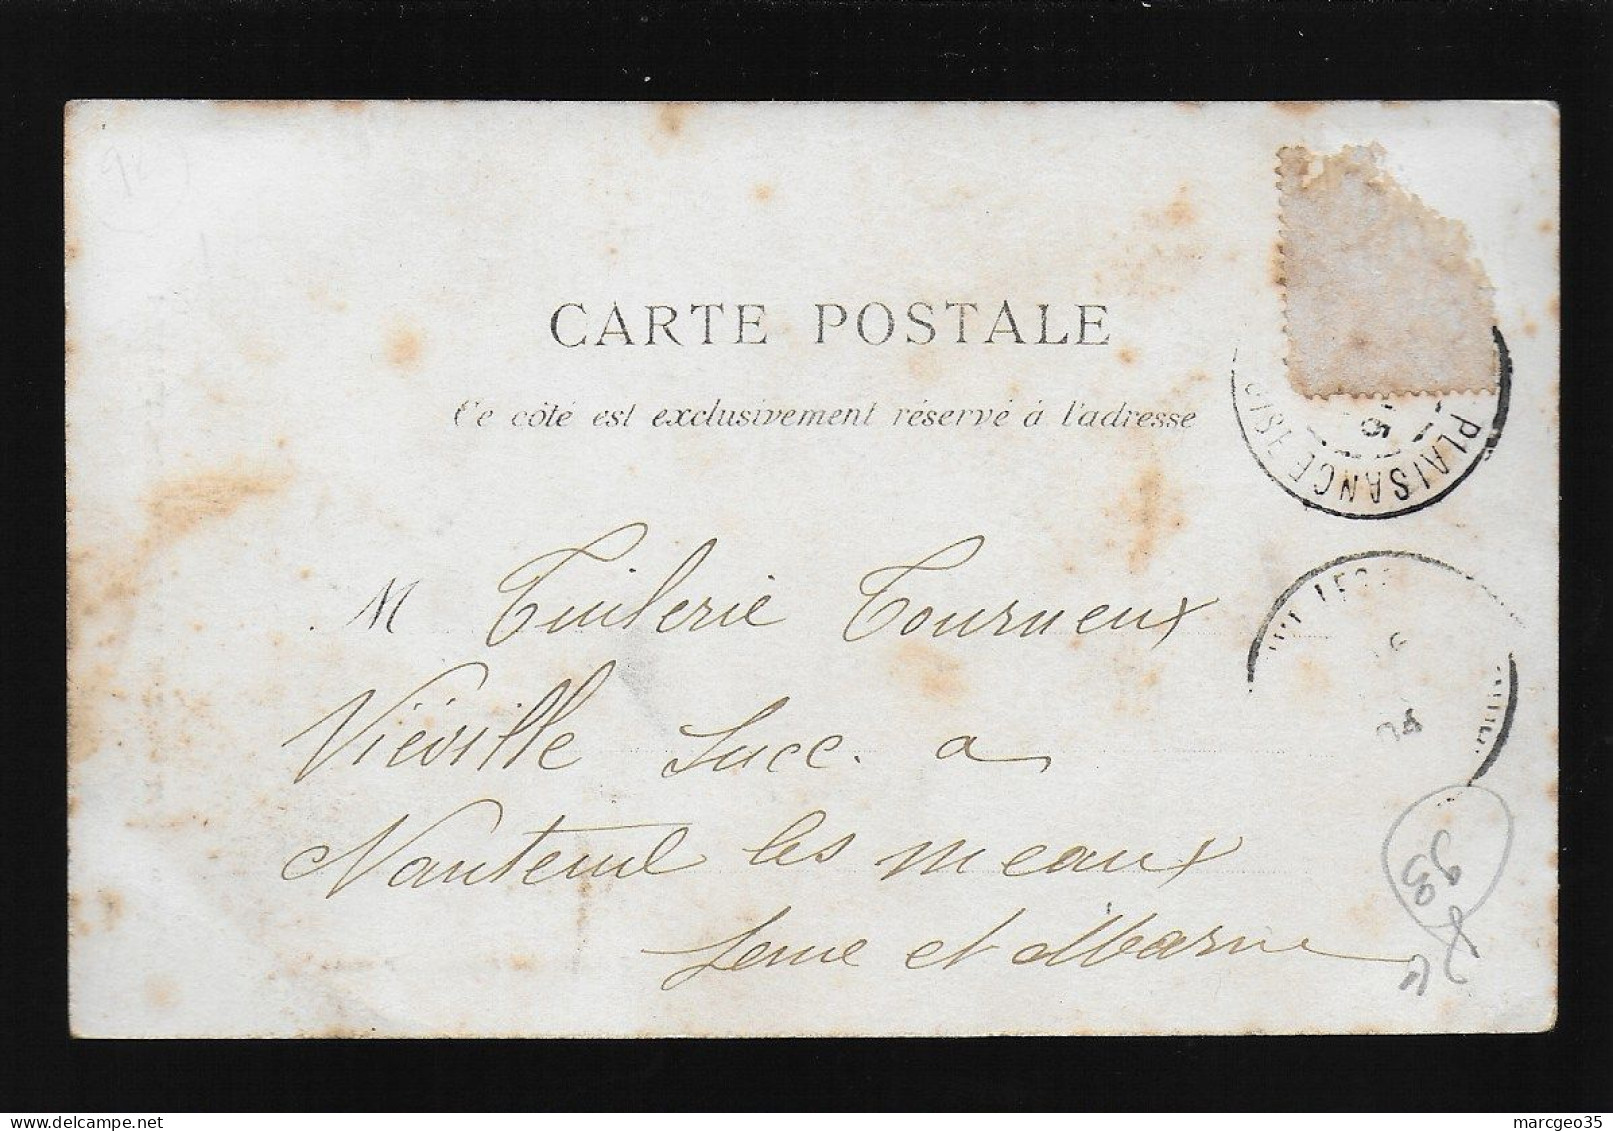 CARTE POSTALE
Ce côté est exclusivement réservé à l'adresse
PLAISANCE
M Tuilerie Tourneux
Viéville Succ. a
Nanteuil les meaux
Seine et Marne
93
marcgeo35